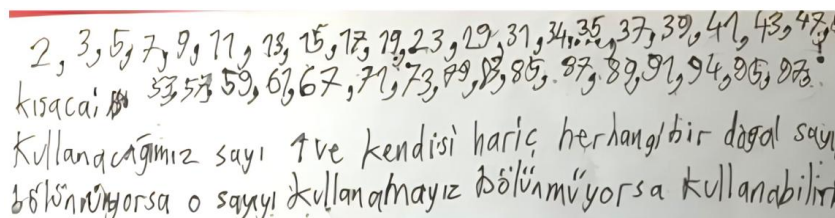 2, 3, 5, 7, 9, 11, 13, 15, 17, 19, 23, 29, 31, 34, 35, 37, 39, 41, 43, 47,
53, 57, 59, 61, 67, 71, 73, 79, 83, 85, 87, 89, 91, 94, 95, 97
kısacaı
Kullanacağımız sayı 1 ve kendisi hariç herhangi bir doğal sayı
bölünmüyorsa o sayıyı kullanamayız bölünmüyorsa kullanabilir